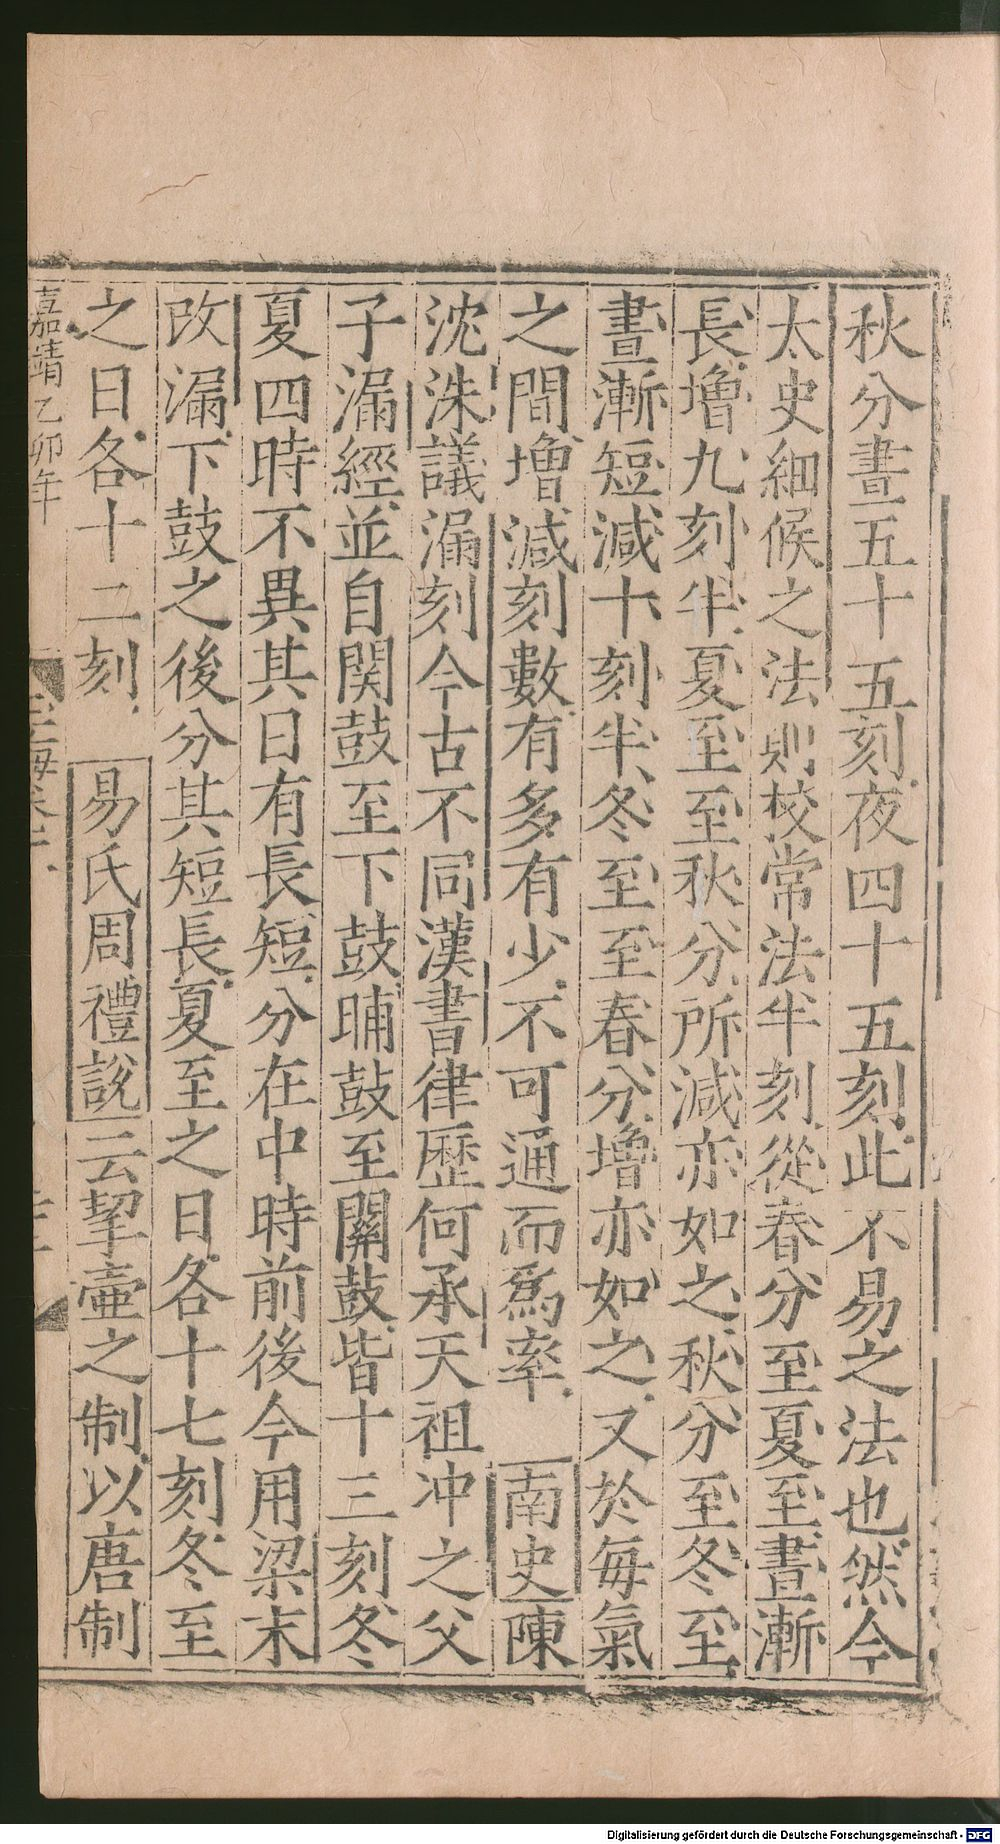 秋分晝五十五刻夜四十五刻此不易之法也然今
太史細候之法則校常法半刻從春分至夏至晝漸
長增九刻半夏至至秋分所減亦如之秋分至冬至
晝漸短減十刻半冬至至春分增亦如之又於每氣
之間增減刻數有多有少不可通而爲率 南史陳
沈洙議漏刻今古不同漢書律歷何承天祖冲之父
子漏經並自関鼓至下鼓晡鼓至關鼓皆十三刻冬
夏四時不異其日有長短分在中時前後今用梁末
改漏下鼓之後分其短長夏至之日各十七刻冬至
之日各十二刻 易氏周禮說云挈壷之制以唐制
嘉靖乙卯年
Digitalisierung gefördert durch die Deutsche Forschungsgemeinschaft - DFG